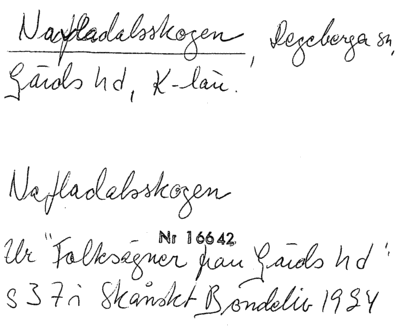 Nafladalsskogen, Degeberga sn,
Gärds hd, K-län.
Nafladalsskogen
Nr 16642
Ur "Folksägner från Gärds hd"
s 37 i Skånskt Bondeliv 1924